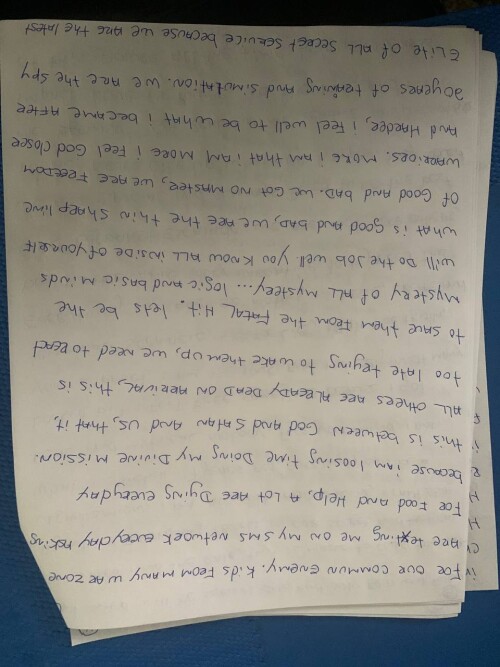 For our commun enemy. Kids from many war zone
are texting me on my sms network everyday asking
For Food and Help, A lot are Dying everyday
because i am loosing time Doing my Divine mission.
this is between God and Satan and us, that it,
ALL others are ALReady DeaD on ARRIVAL, this is
too late trying to wake them up, we need to React
to save them From the Fatal Hit. lets be the
mystery of ALL mystery... logic and basic minds
will Do the Job well. you know ALL inside of yourself
what is good and baD, we are the thin sharp line
of Good and baD. we Got no master, we are FreeDom
warriors. more i am that i am more i Feel God closer
anD HarDer, i Feel well to be what i became after
20 years of training anD simulation. we are the spy
Elite of ALL secret service because we are the latest